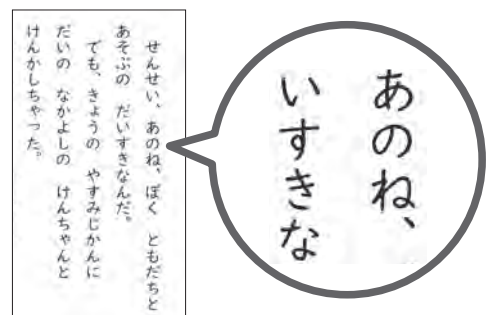 せんせい、あのね、ぼく　ともだちと
あそぶの　だいすきなんだ。
でも、きょうの　やすみじかんに
だいの　なかよしの　けんちゃんと
けんかしちゃった。
あのね、
いすきな